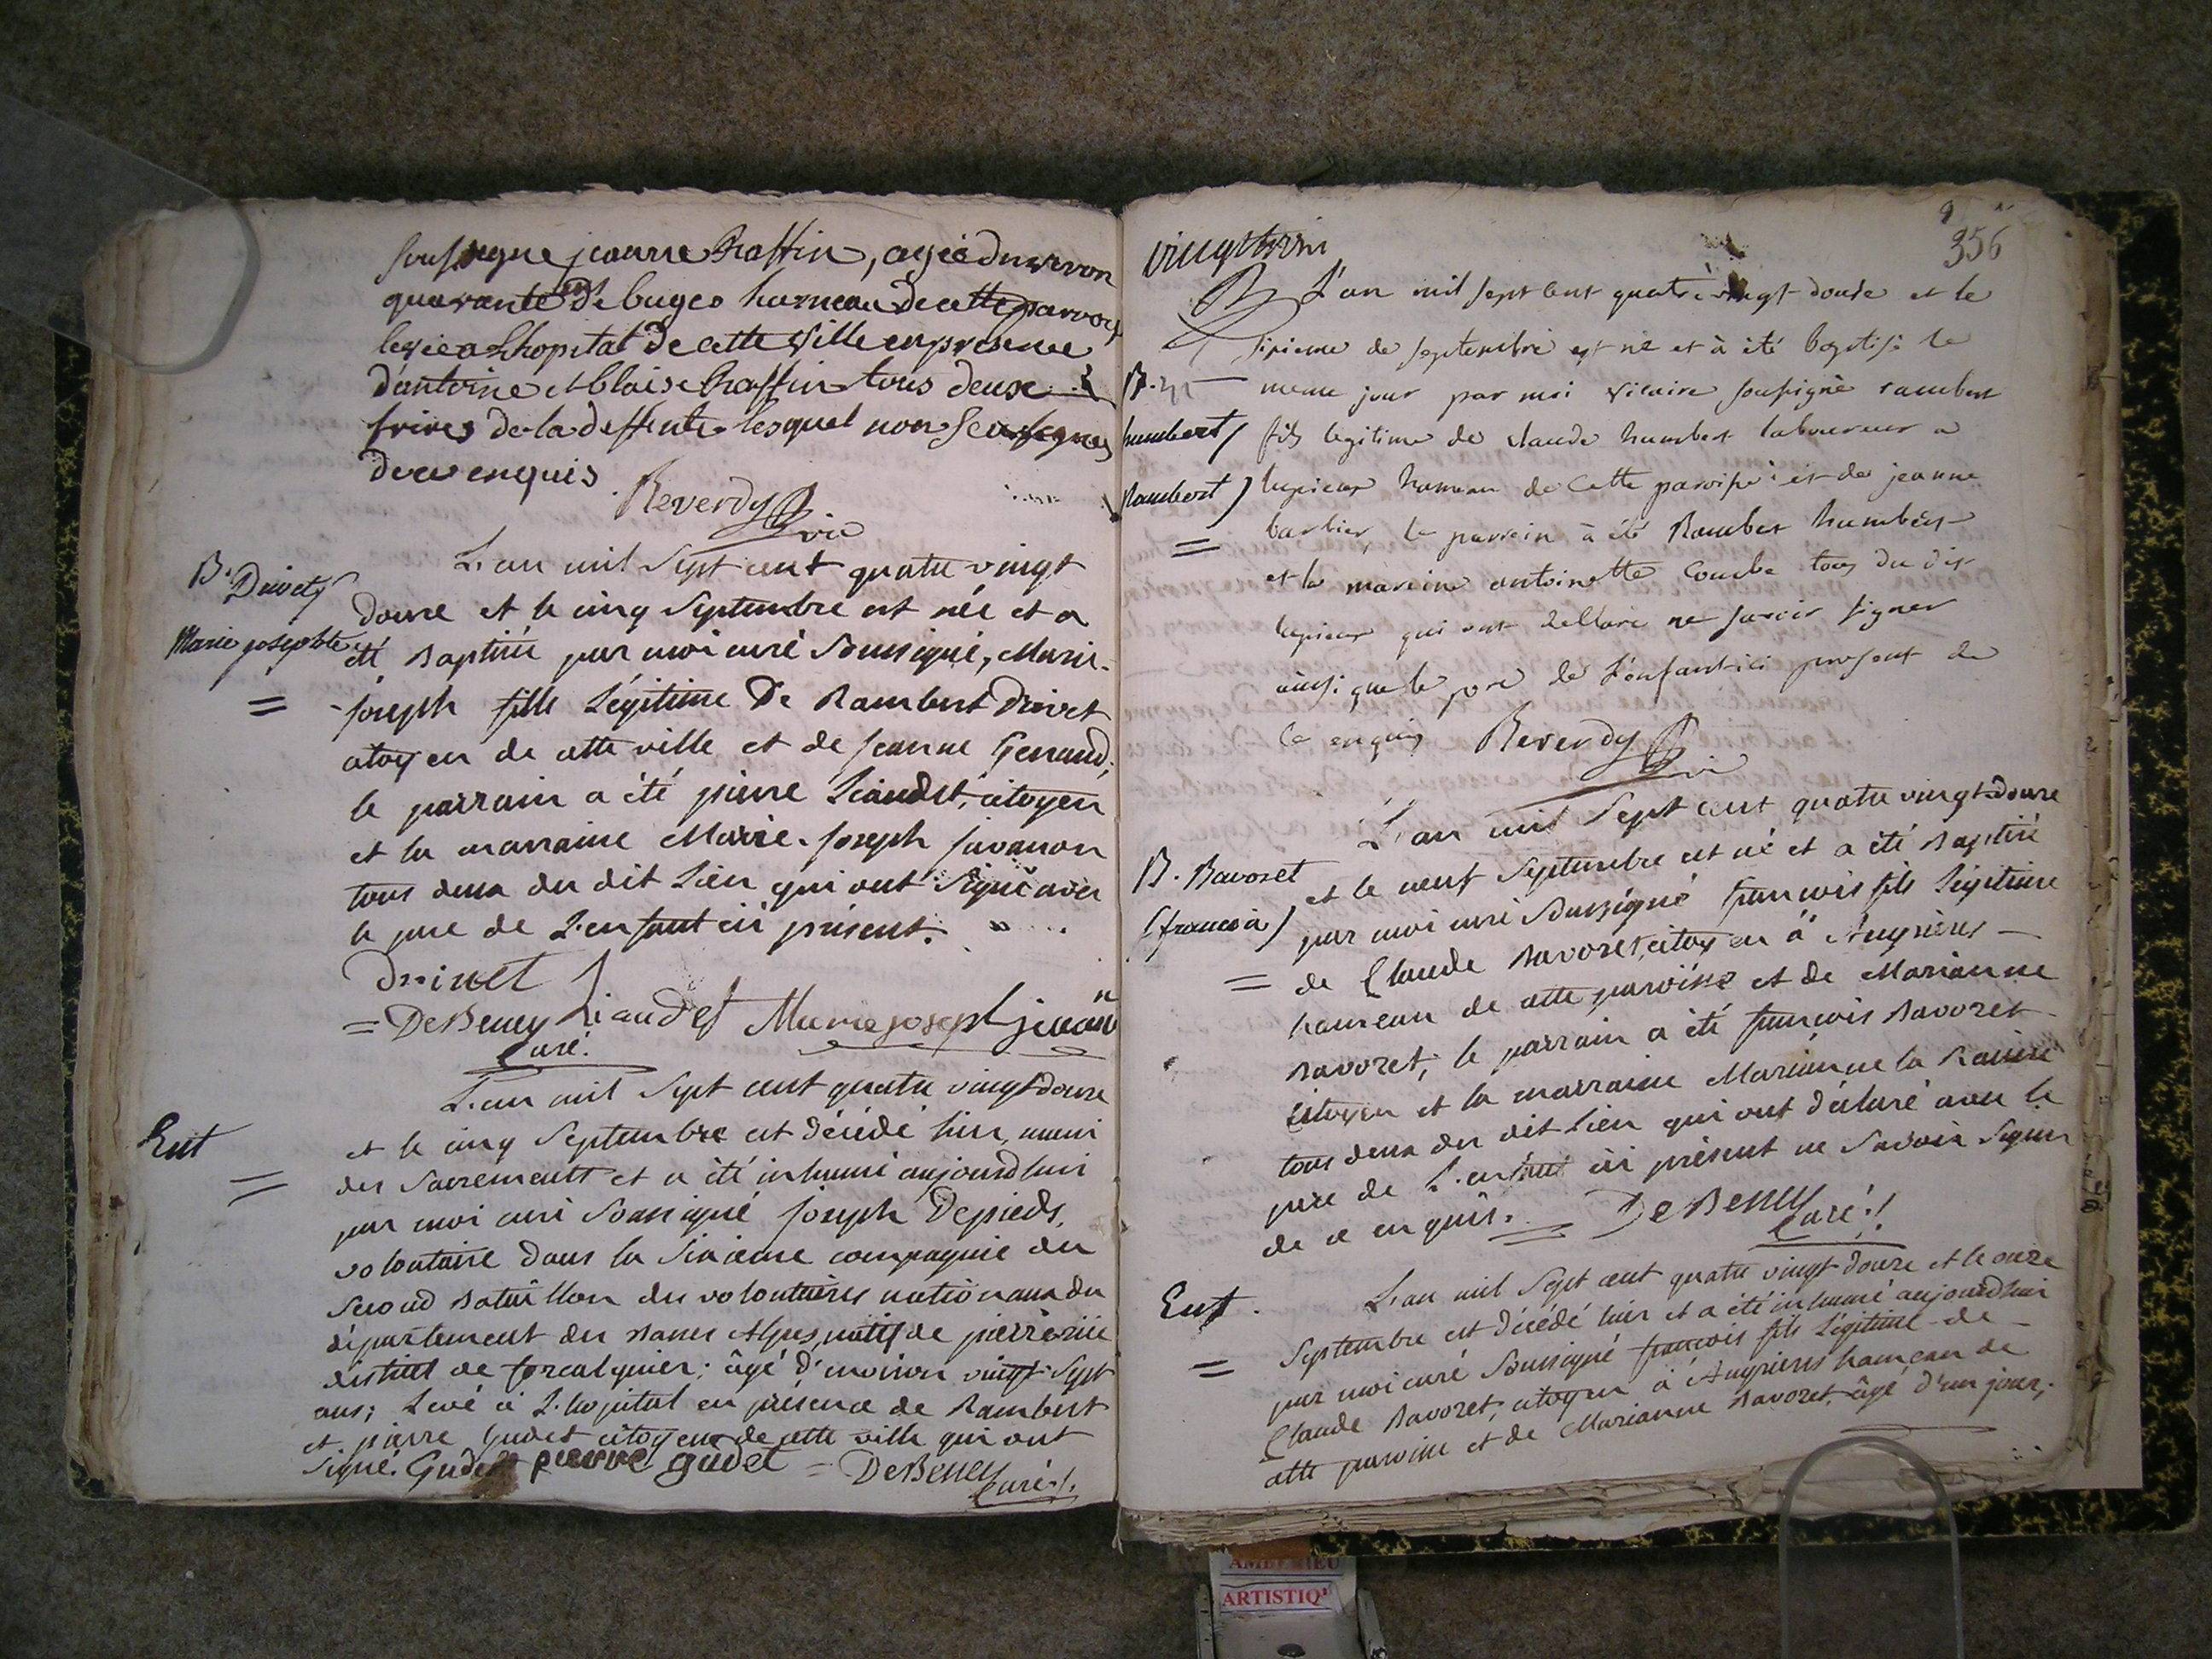 sousigne jeanne Chaffin, agée d'environ
quarante ans de buges hameau de cette parrois
levée a Lhopital de cette ville en presence
d'antoine et blaise Chaffin tous deux
freres de la deffunte lesquel non seu signes
de ce enquis
Reverdy vic
B. Drivet
Marie josephte
=
L'an mil Sept cent quatre vingt
douze et le cinq Septembre est née et a
été Baptisée par moi curé Soussigné, Marie-
joseph fille Légitime De Rambert Drivet
citoyen de cette ville et de jeanne Genaud;
le parrain a été pierre Liaudet, citoyen
et la marraine Marie-joseph juvanon
tous deux du dit Lieu qui ont signé avec
le pere de L'enfant ici présent.
Drivet
= DeBeney Liaudet Marie joseph
Curé.
Ent
=
L'an mil Sept cent quatre vingt douze
et le cinq Septembre est décédé hier, muni
des Sacrements et a été inhumé aujourdhui
par moi curé Soussigné joseph Depieds,
volontaire dans la Sixieme compagnie du
Second Bataillon des volontaires nationaux du
département des Basses Alpes, natif de pierrerüe
district de forcalquier; âgé d'environ vingt-Sept
ans; Levé à L'hopital en présence de Rambert
et pierre Gudet citoyens de cette ville qui ont
Signé. Gudet pierre gudet = DeBeney
Curé.
356
B L'an mil sept cent quatre vingt douse et le
sixieme de septembre est né et à été baptisé le
meme jour par moi vicaire sousigné rambert
fils legitime de claude humbert laboureur a
lupieux hameau de cette paroisse et de jeanne
barbier, le parrein à été Rambert humbert
et la mareine antoinette Combe tous du dit
lupieux qui ont declaré ne savoir signer
ainsi que le pere de L'enfant ici present de
ce enquis Reverdy vic
B.
humbert
Rambert
=
B. Bavoset
(françois)
=
L'an mil Sept cent quatre vingt-douze
et le neuf Septembre est né et a été Baptisé
par moi curé Soussigné françois fils Légitime
de Claude Bavozet, citoyen à
hameau de cette paroisse et de Marianne
Bavozet; le parrain a été françois Bavozet
citoyen et la marraine Marianne la
tous deux du dit Lieu qui ont déclaré avec le
pere de L'enfant ici présent ne Savoir Signer
de ce enquis. = DeBeney
Curé.!
Ent.
=
L'an mil Sept cent quatre vingt douze et le onze
Septembre est décédé hier et a été inhumé aujourdhui
par moi curé Soussigné françois fils Légitime de
Claude Bavozet, citoyen à hameau de
cette paroisse et de Marianne Bavozet, âgé d'un jour;
AMEYZIEU
ARTISTIQ'